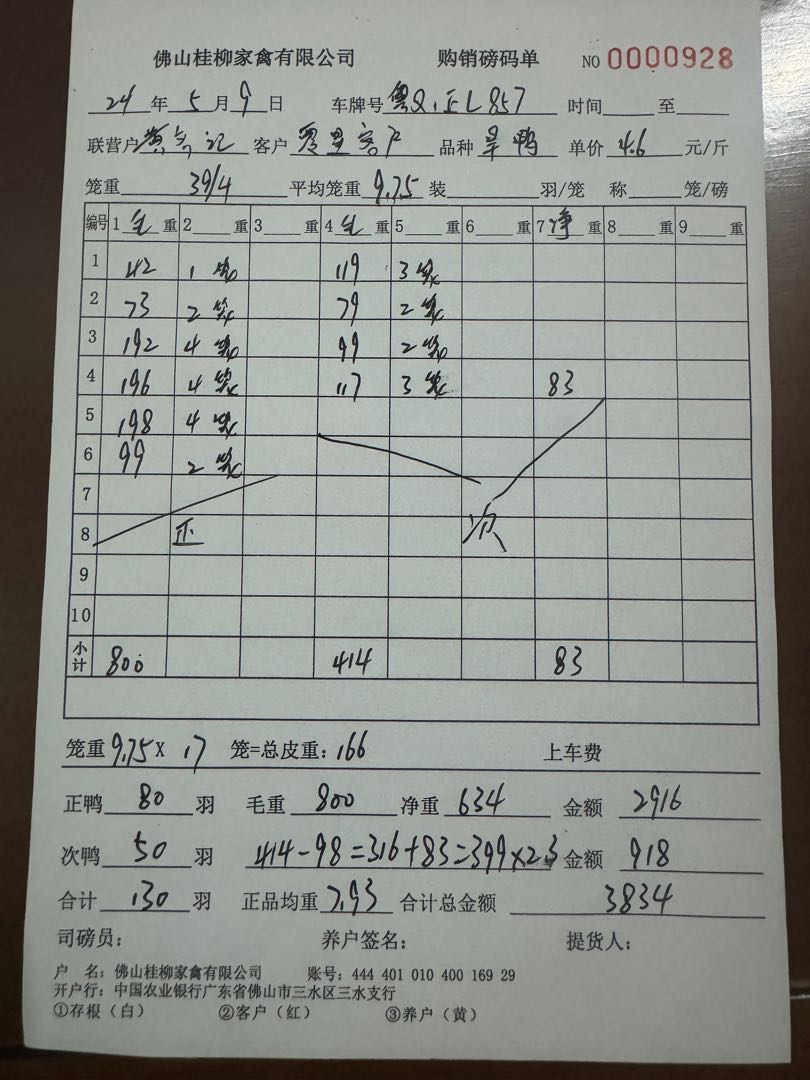 佛山桂柳家禽有限公司 购销磅码单 NO 0000928
24 年 5 月 9 日 车牌号 粤Q.正L857 时间 至
联营户 客户 客户 品种 鸭 单价 4.6 元/斤
笼重 39/4 平均笼重 9.75 装 羽/笼 称 笼/磅
编号 1 毛 重 2 重 3 重 4 毛 重 5 重 6 重 7 净 重 8 重 9 重
1 42 1笼 119 3笼
2 73 2笼 79 2笼
3 192 4笼 99 2笼
4 196 4笼 117 3笼 83
5 198 4笼
6 99 2笼
7
8 正 次
9
10
小计 800 414 83
笼重 9.75 X 17 笼=总皮重: 166 上车费
正鸭 80 羽 毛重 800 净重 634 金额 2916
次鸭 50 羽 414-98=316+83=399×2.3 金额 918
合计 130 羽 正品均重 7.93 合计总金额 3834
司磅员: 养户签名: 提货人:
户 名: 佛山桂柳家禽有限公司 账号: 444 401 010 400 169 29
开户行: 中国农业银行广东省佛山市三水区三水支行
①存根（白） ②客户（红） ③养户（黄）